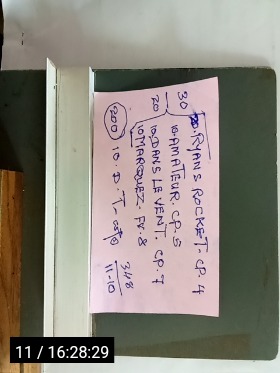 30 RYAN'S ROCKET - CP. 4
10. AMATEUR. CP. 5
20 10. DANS LE VENT. CP. 7
10 MARQUEZ - PV. 8
200 10. D. T -
348
11-10
11 / 16:28:29